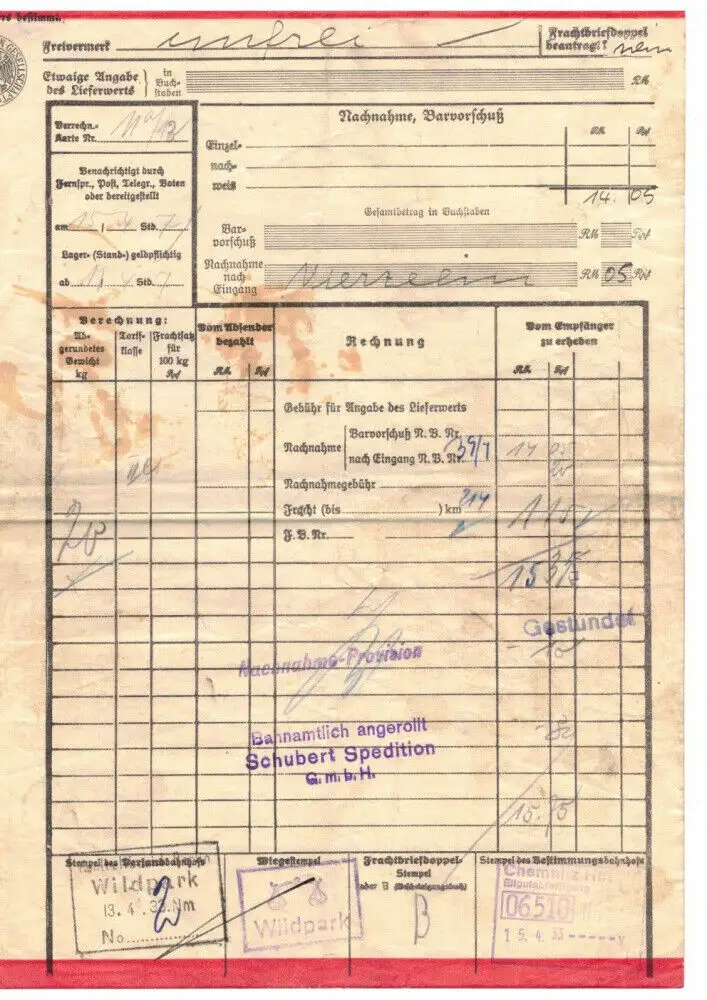 bestimmt.
GESELLSCHAFT
Freivermerk unfrei
Frachtbriefdoppel
beantragt? nein
Etwaige Angabe
des Lieferwerts
in
Buch-
staben
RM
Verrechn.-
Karte Nr.
Benachrichtigt durch
Fernspr., Post, Telegr., Boten
oder bereitgestellt
am 15 / 4 Std. 7
Lager- (Stand-) geldpflichtig
ab Std. 7
Nachnahme, Barvorschuß
RM Rpf
Einzel-
nach-
weis
14. 05
Gesamtbetrag in Buchstaben
Bar-
vorschuß
RM Rpf
Nachnahme
nach
Eingang
Vierzehn RM 05 Rpf
Berechnung:
Ab-
gerundetes
Gewicht
kg
Tarif-
klasse
Frachtsatz
für
100 kg
Rpf
Vom Absender
bezahlt
RM Rpf
Rechnung
Vom Empfänger
zu erheben
RM Rpf
Gebühr für Angabe des Lieferwerts
Nachnahme
Barvorschuß N. B. Nr.
nach Eingang N. B. Nr.
Nachnahmegebühr
Fracht (bis ) km
F. B. Nr.
20
Gestundet
Nachnahme-Provision
Bahnamtlich angerollt
Schubert Spedition
G.m.b.H.
15.95
Stempel des Versandbahnhofs
Wildpark
13. 4. 33. Nm
No.
Wiegestempel
Wildpark
Frachtbriefdoppel-
Stempel
B
Stempel des Bestimmungsbahnhofs
Chemnitz
06510
15. 4. 33 V